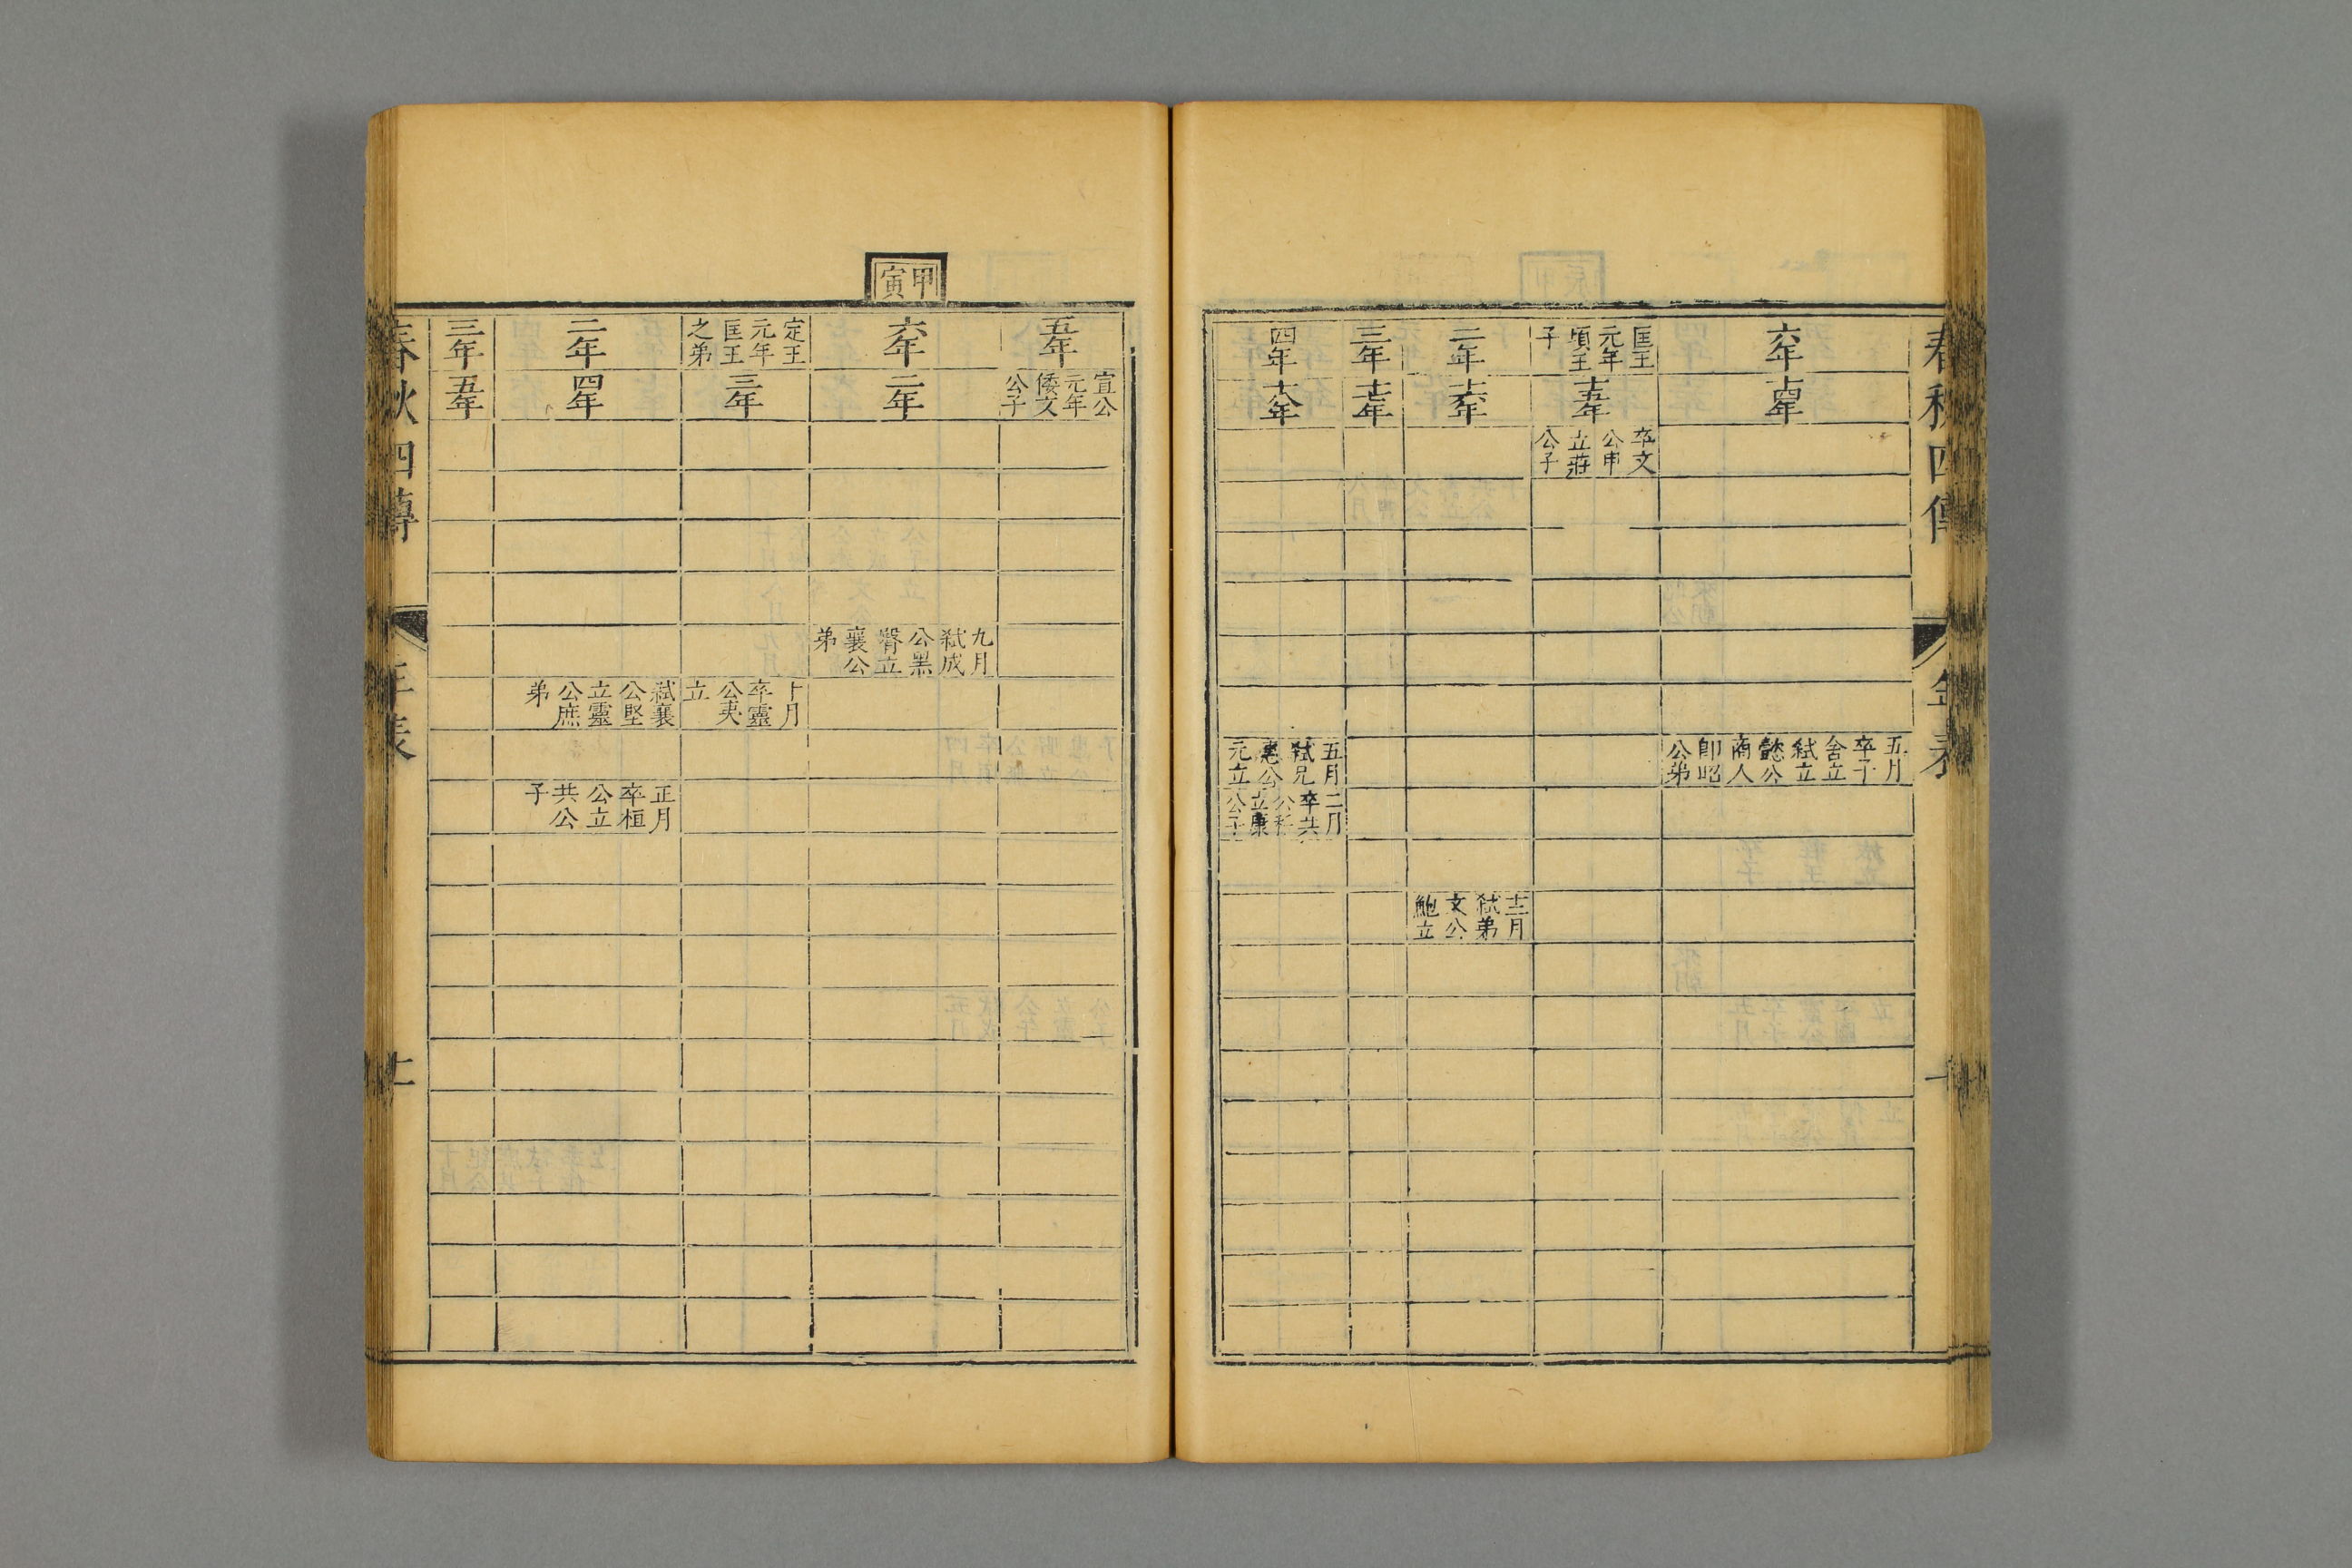 春秋四傳
年表
十
六年
十四年
五月卒子舍立弑立懿公商人卽昭公弟
匡王元年頃王子
十五年
卒文公申立莊公子
二年
十六年
十一月弑弟文公鮑立
三年
十七年
四年
十八年
五月弑兄惠公元立
二月卒共公稻立康公子
甲寅
五年
宣公元年倭文公子
六年
二年
九月弑成公黑臀立襄公弟
定王元年匡王之弟
三年
十月卒靈公夷立
二年
四年
弑襄公堅立靈公庶弟
正月卒桓公立共公子
三年
五年
春秋四傳
年表